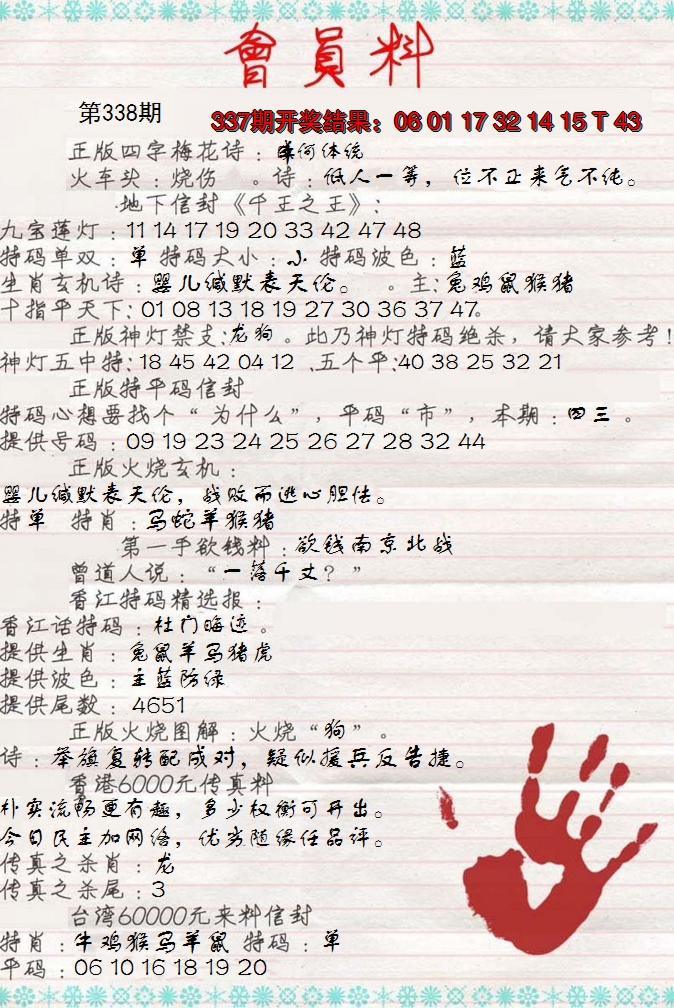 會員料
第338期
337期开奖结果：06 01 17 32 14 15 T 43
正版四字梅花诗：成何体统
火车头：烧伤 。诗：低人一等，位不正来气不纯。
地下信封《千王之王》：
九宝莲灯：11 14 17 19 20 33 42 47 48
特码单双：单 特码大小：小 特码波色：蓝
生肖玄机诗：婴儿缄默表天伦。 。主：兔鸡鼠猴猪
十指平天下：01 08 13 18 19 27 30 36 37 47。
正版神灯禁支：龙狗。此乃神灯特码绝杀，请大家参考！
神灯五中特：18 45 42 04 12 、五个平：40 38 25 32 21
正版特平码信封
特码心想要找个“为什么”，平码“市”，本期：四三。
提供号码：09 19 23 24 25 26 27 28 32 44
正版火烧玄机：
婴儿缄默表天伦，战败而逃心胆怯。
特单 特肖：马蛇羊猴猪
第一手欲钱料：欲钱南京北战
曾道人说：“一落千丈？”
香江特码精选报：
香江话特码：杜门晦迹。
提供生肖：兔鼠羊马猪虎
提供波色：主蓝防绿
提供尾数：4651
正版火烧图解：火烧“狗”。
诗：举旗复转配成对，疑似援兵反告捷。
香港6000元传真料
朴实流畅更有趣，多少权衡可开出。
今日民主加网络，优劣随缘任品评。
传真之杀肖：龙
传真之杀尾：3
台湾60000元来料信封
特肖：牛鸡猴马羊鼠 特码：单
平码：06 10 16 18 19 20